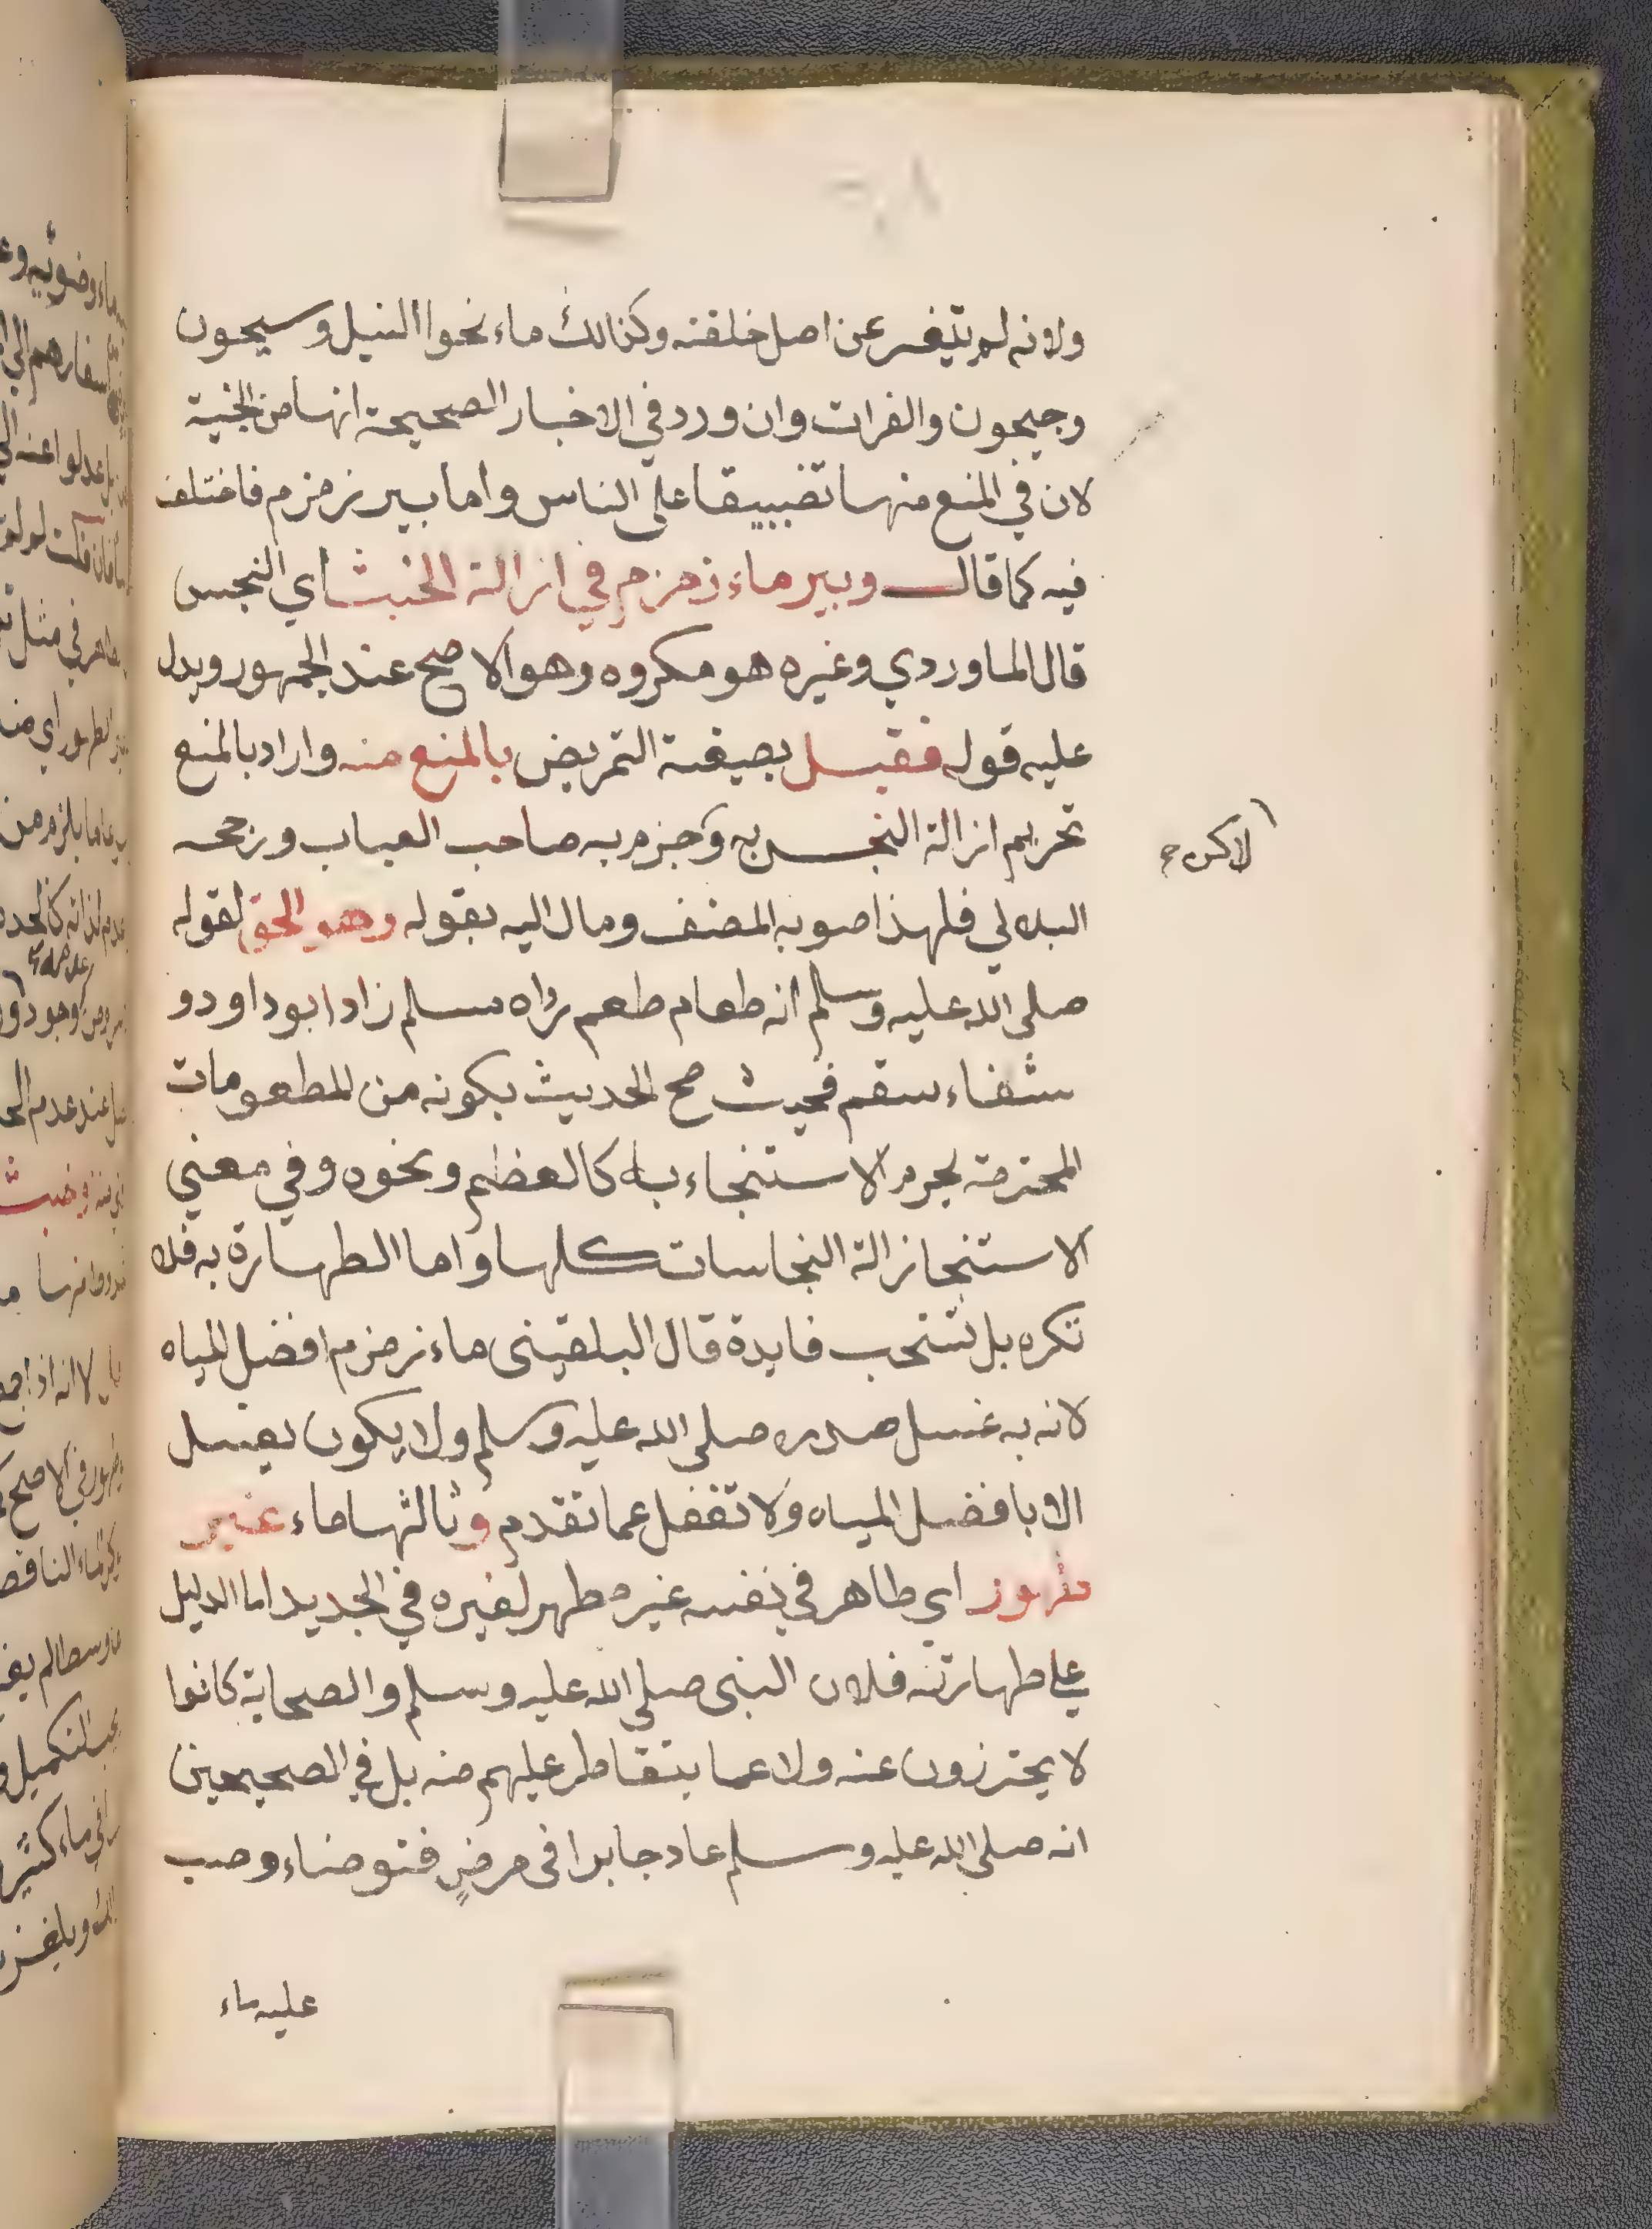 ولانه لم يتغير عن اصل خلقته وكذالك ماء نحوا النيل وسيحون
وجيحون والفرات وان ورد في الاخبار الصحيحة انها من الجنة
لان في المنع منها تضييقا على الناس واما بير زمزم فاختلف
فيه كما قال وبير ماء زمزم في ازالة الخبث اي النجس
قال الماوردي وغيره هو مكروه وهو الاصح عند الجمهور ويدل
عليه قوله فقيل بصيغة التمريض بالمنع منه واراد بالمنع
تحريم ازالة النجس به وجزم به صاحب العباب ورجحه
لاكن
البلالي فلهذا صوبه المصنف ومال اليه بقوله وهو الحق لقوله
صلى الله عليه وسلم انه طعام طعم رواه مسلم زاد ابو داود و
شفاء سقم فحيث صح الحديث بكونه من المطعومات
المحترمة يحرم الاستنجاء به كالعظم ونحوه وفي معني
الاستنجا زالة النجاسات كلها واما الطهارة به فلا
تكره بل تستحب فايدة قال البلقيني ماء زمزم افضل المياه
لانه به غسل صدره صلى الله عليه وسلم ولا يكون يغسل
الا بافضل المياه ولا تغفل عما تقدم وثالثها ماء غير
طهور اي طاهر في نفسه غير مطهر لغيره في الجديد اما الدليل
علي طهارته فلان النبي صلي الله عليه وسلم والصحابة كانوا
لا يحترزون عنه ولا عما يتقاطر عليهم منه بل في الصحيحين
انه صلى الله عليه وسلم عاد جابرا في مرض فتوضاء وصب
عليه ماء